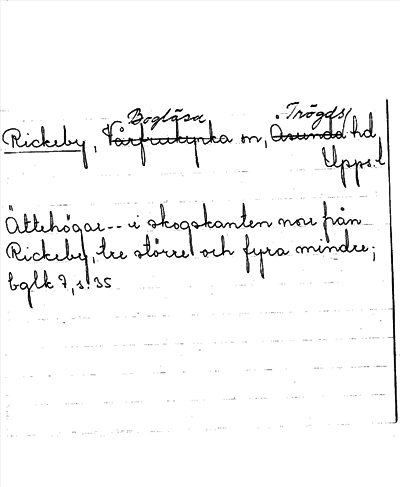 Bogläsa Trögds
Rickeby, Vårfrukyrka sn, Åsunda hd,
Upps. l
Ättehögar -- i skogskanten norr från
Rickeby, tre större och fyra mindre;
bglk 7, s. 35